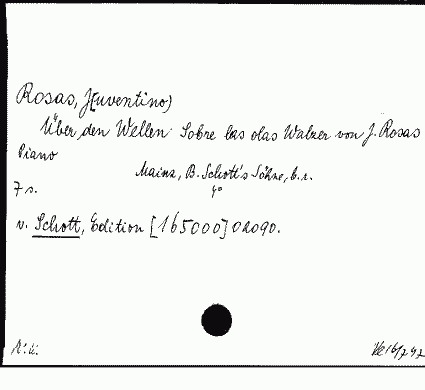 Rosas, J(uventino)
Über den Wellen Sobre las olas Walzer von J. Rosas
Piano
Mainz, B. Schott's Söhne, b.r.
7 s. 4°
v. Schott, Edition [165000] 02090.